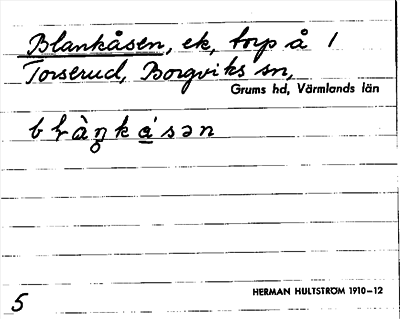 Blankåsen, ek, torp å 1
Torserud, Borgviks sn,
Grums hd, Värmlands län
HERMAN HULTSTRÖM 1910–12
5